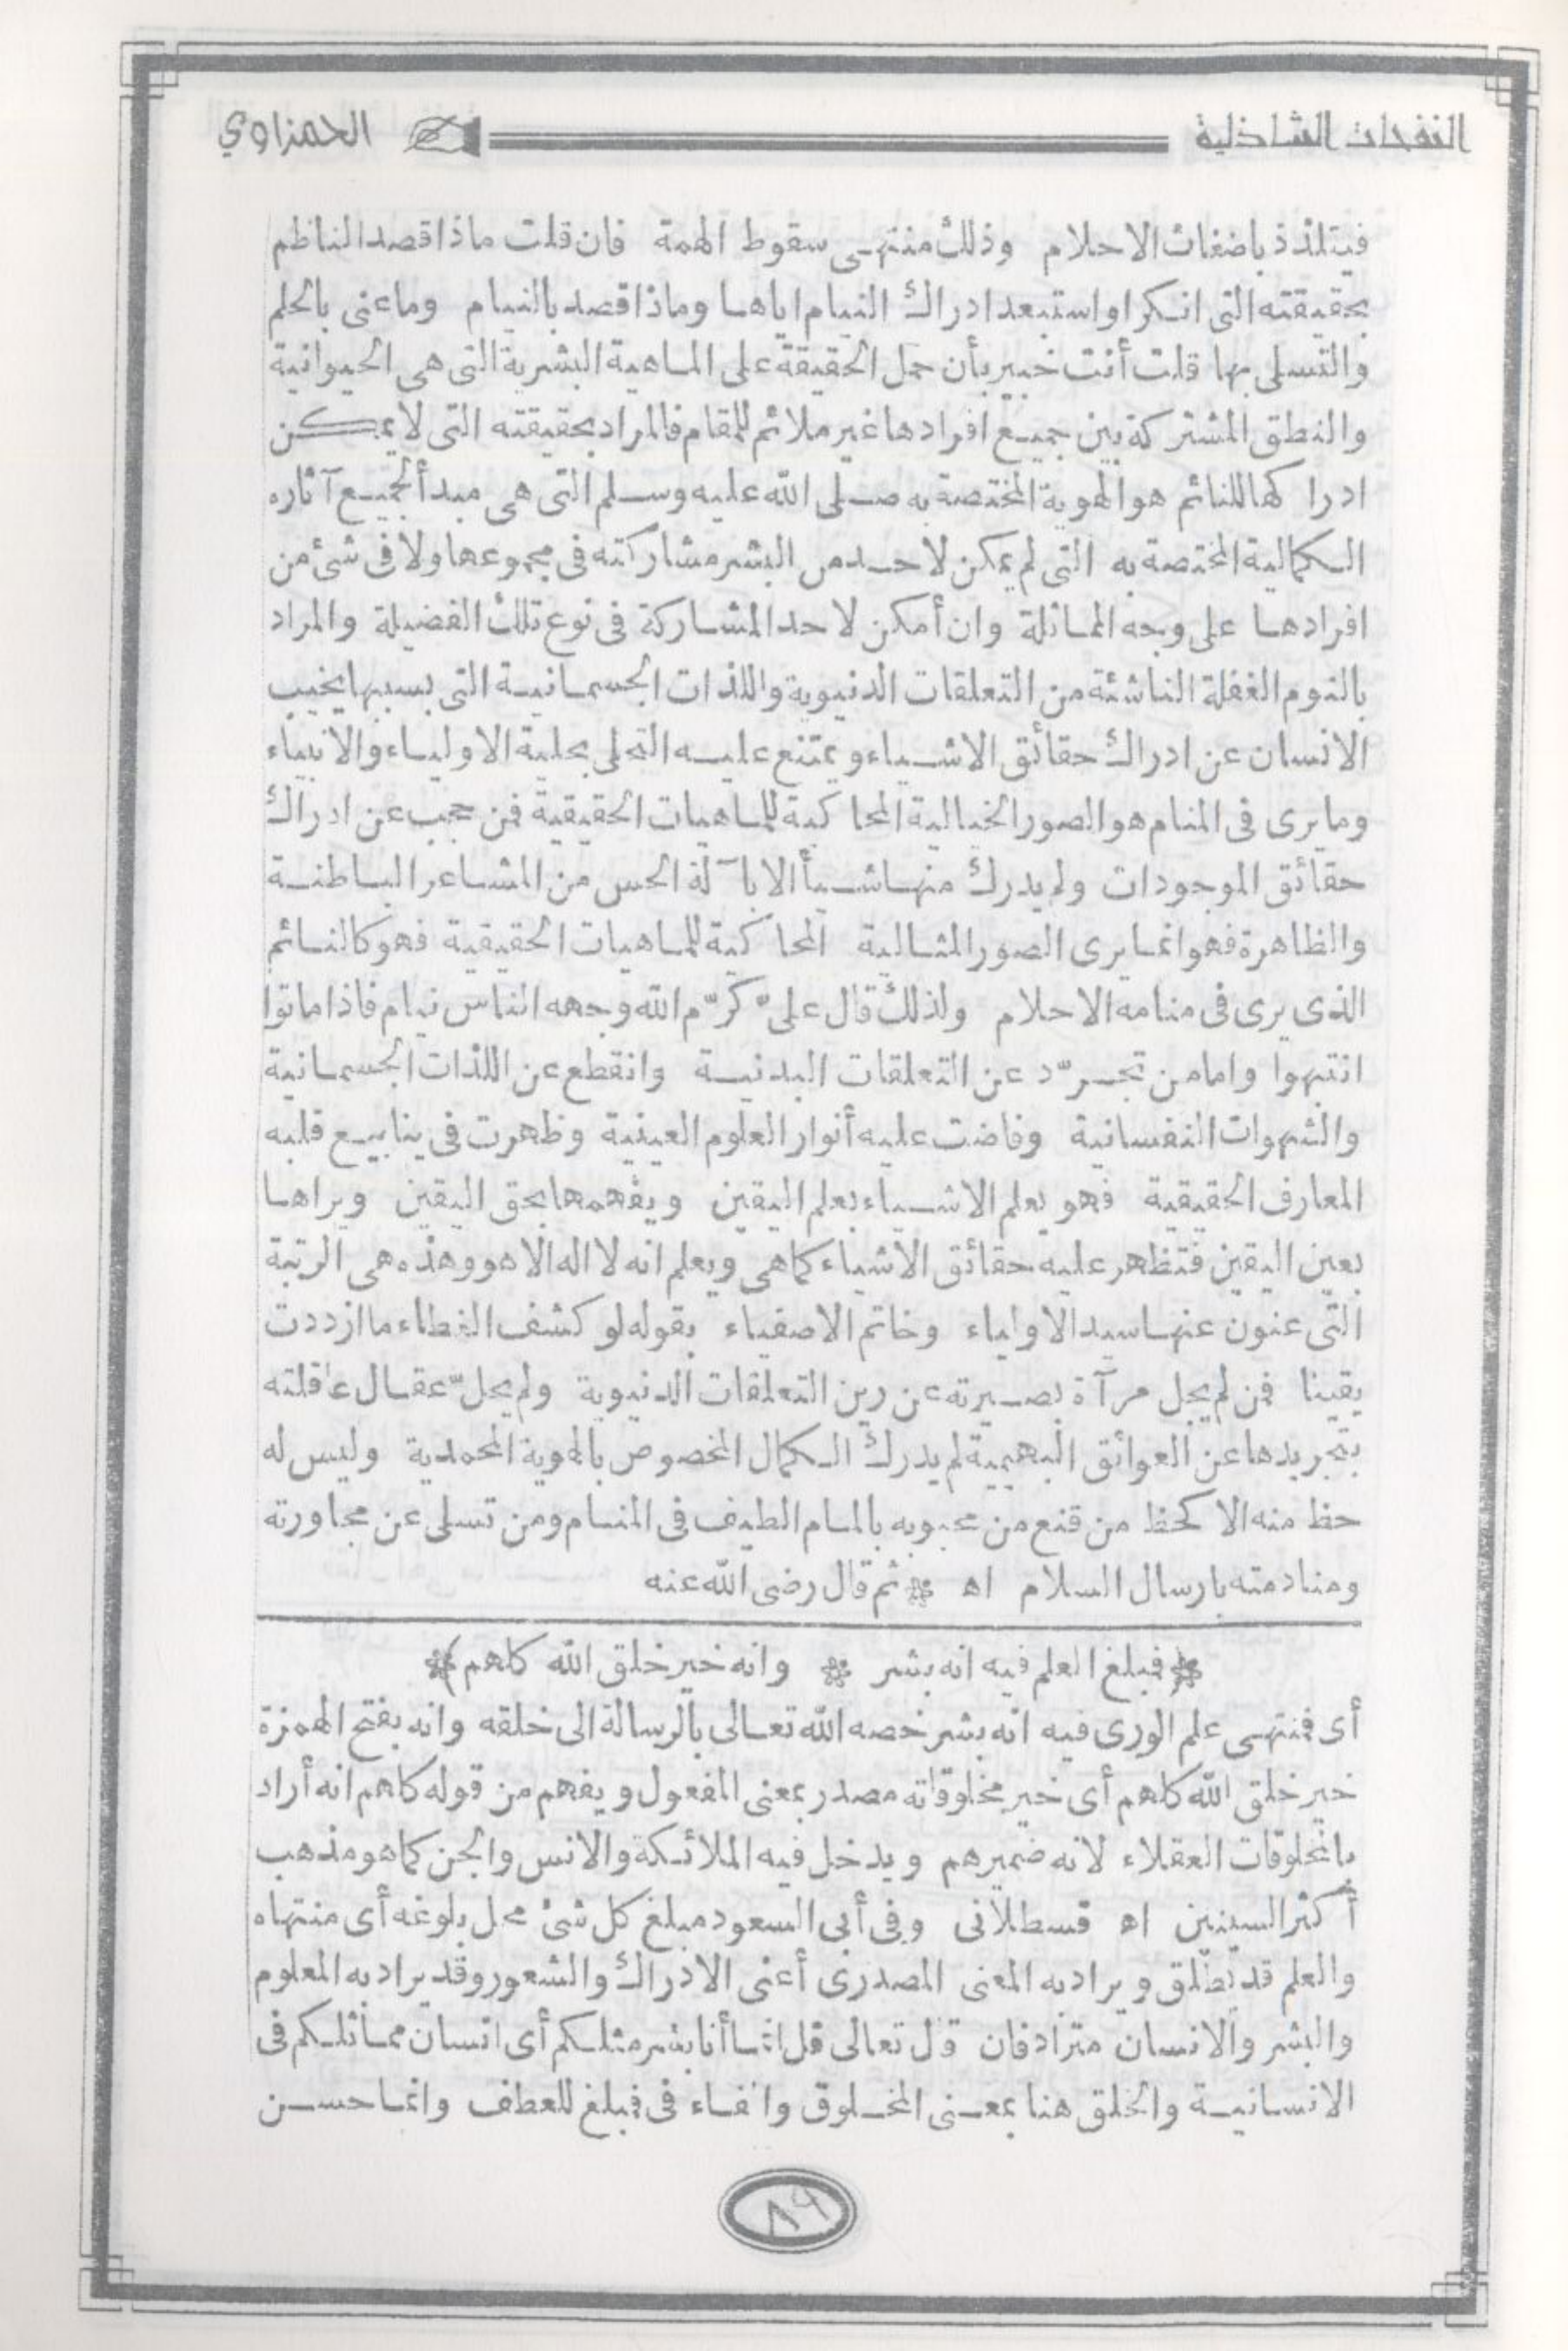 النفحات الشاذلية
الحمزاوي
فيتلذذ باضغاث الاحلام وذلك منتهى سقوط الهمة فان قلت ماذا قصد الناظم
بحقيقته التى انكر او استبعد ادراك النيام اياها وماذا قصد بالنيام وما عنى بالحلم
والتسلى بها قلت أنت خبير بأن حمل الحقيقة على الماهية البشرية التى هى الحيوانية
والنطق المشتركة بين جميع افرادها غير ملائم للمقام فالمراد بحقيقته التى لا يمكن
ادراكها للنائم هو الهوية المختصة به صلى الله عليه وسلم التى هى مبدأ لجميع آثاره
الكمالية المختصة به التى لم يمكن لاحد من البشر مشاركته فى مجموعها ولا فى شئ من
افرادها على وجه المماثلة وان أمكن لاحد المشاركة فى نوع تلك الفضيلة والمراد
بالنوم الغفلة الناشئة من التعلقات الدنيوية واللذات الجسمانية التى بسببها يخيب
الانسان عن ادراك حقائق الاشياء ويمتنع عليه التحلى بحلية الاولياء والانبياء
وما يرى فى المنام هو الصور الخيالية المحاكية للماهيات الحقيقية فمن حجب عن ادراك
حقائق الموجودات ولم يدرك منها شيأ الا بآلة الحس من المشاعر الباطنة
والظاهرة فهو انما يرى الصور المثالية المحاكية للماهيات الحقيقية فهو كالنائم
الذى يرى فى منامه الاحلام ولذلك قال علىّ كرّم الله وجهه الناس نيام فاذا ماتوا
انتبهوا واما من تجرّد عن التعلقات البدنية وانقطع عن اللذات الجسمانية
والشهوات النفسانية وفاضت عليه أنوار العلوم العينية وظهرت فى ينابيع قلبه
المعارف الحقيقية فهو يعلم الاشياء بعلم اليقين ويفهمها بحق اليقين ويراها
بعين اليقين فتظهر عليه حقائق الاشياء كما هى ويعلم انه لا اله الا هو وهذه هى الرتبة
التى عنون عنها سيد الاولياء وخاتم الاصفياء بقوله لو كشف الغطاء ما ازددت
يقينا فمن لم يجل مرآة بصيرته عن رين التعلقات الدنيوية ولم يحلّ عقال عاقلته
بتجريدها عن العوائق البهيمية لم يدرك الكمال المخصوص بالهوية المحمدية وليس له
حظ منه الا كحظ من قنع من محبوبه بالمام الطيف فى المنام ومن تسلى عن مجاورته
ومنادمته بارسال السلام اه * ثم قال رضى الله عنه
* فمبلغ العلم فيه انه بشر * وانه خير خلق الله كلهم *
أى فمنتهى علم الورى فيه انه بشر خصه الله تعالى بالرسالة الى خلقه وانه بفتح الهمزة
خير خلق الله كلهم أى خير مخلوقاته مصدر بمعنى المفعول ويفهم من قوله كلهم انه أراد
بالمخلوقات العقلاء لانه ضميرهم ويدخل فيه الملائكة والانس والجن كما هو مذهب
أكثر السنيين اه قسطلانى وفى أبى السعود مبلغ كل شئ محل بلوغه أى منتهاه
والعلم قد يطلق ويراد به المعنى المصدرى أعنى الادراك والشعور وقد يراد به المعلوم
والبشر والانسان مترادفان قال تعالى قل انما أنا بشر مثلكم أى انسان مماثلكم فى
الانسانية والخلق هنا بمعنى المخلوق والفاء فى فمبلغ للعطف وانما حسن